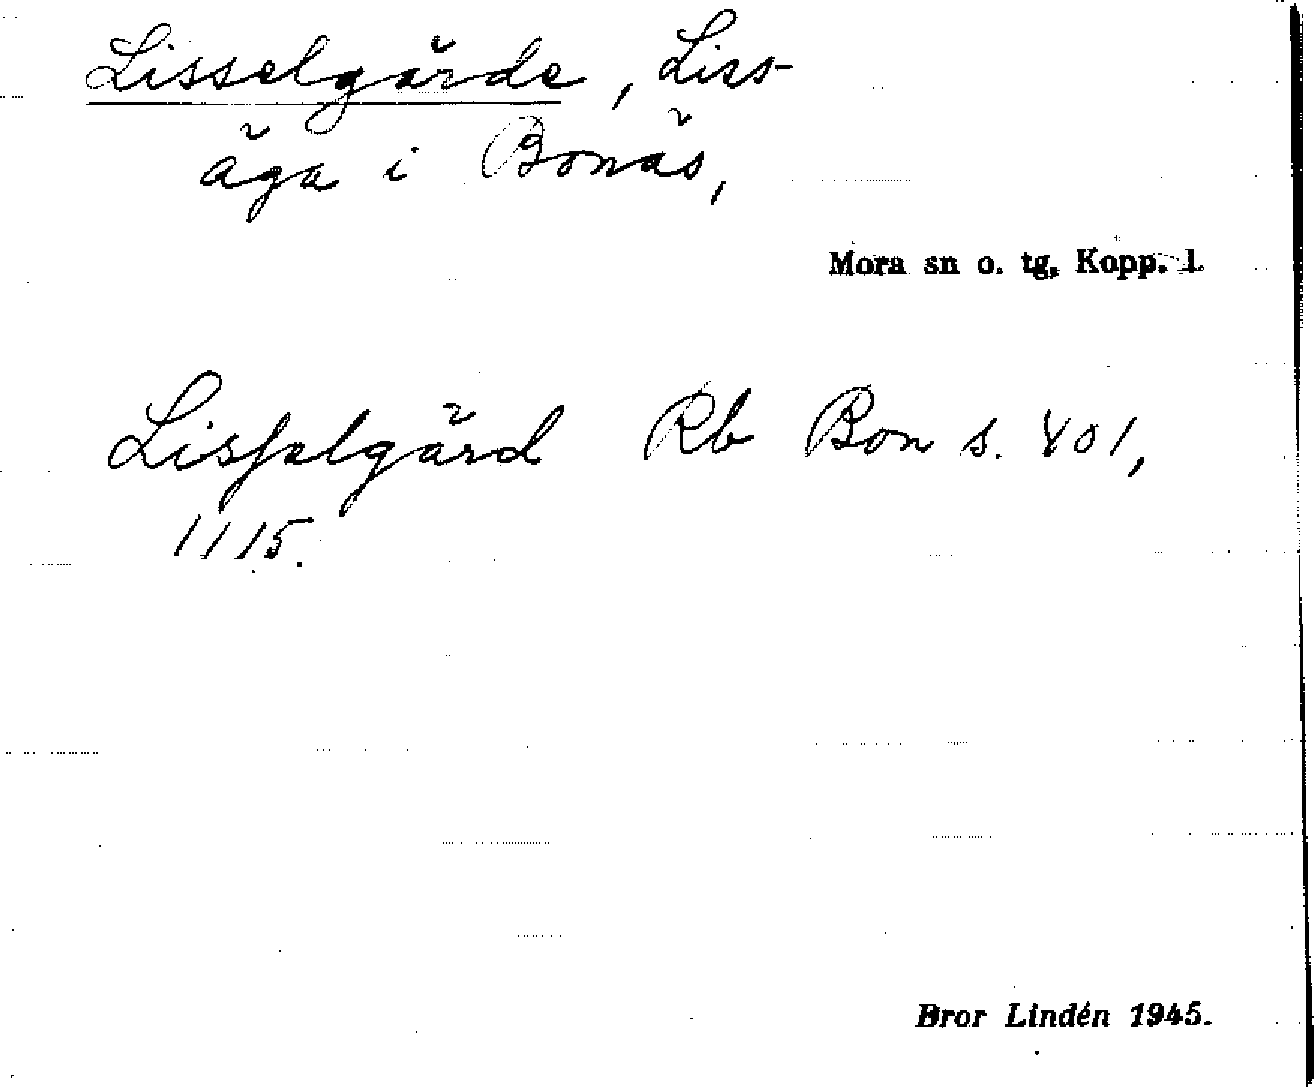 Lisselgärde, Liss-
äga i Bonäs,
Mora sn o. tg, Kopp. l.
Lisselgärd Rb Bon s. 401,
1115.
Bror Lindén 1945.